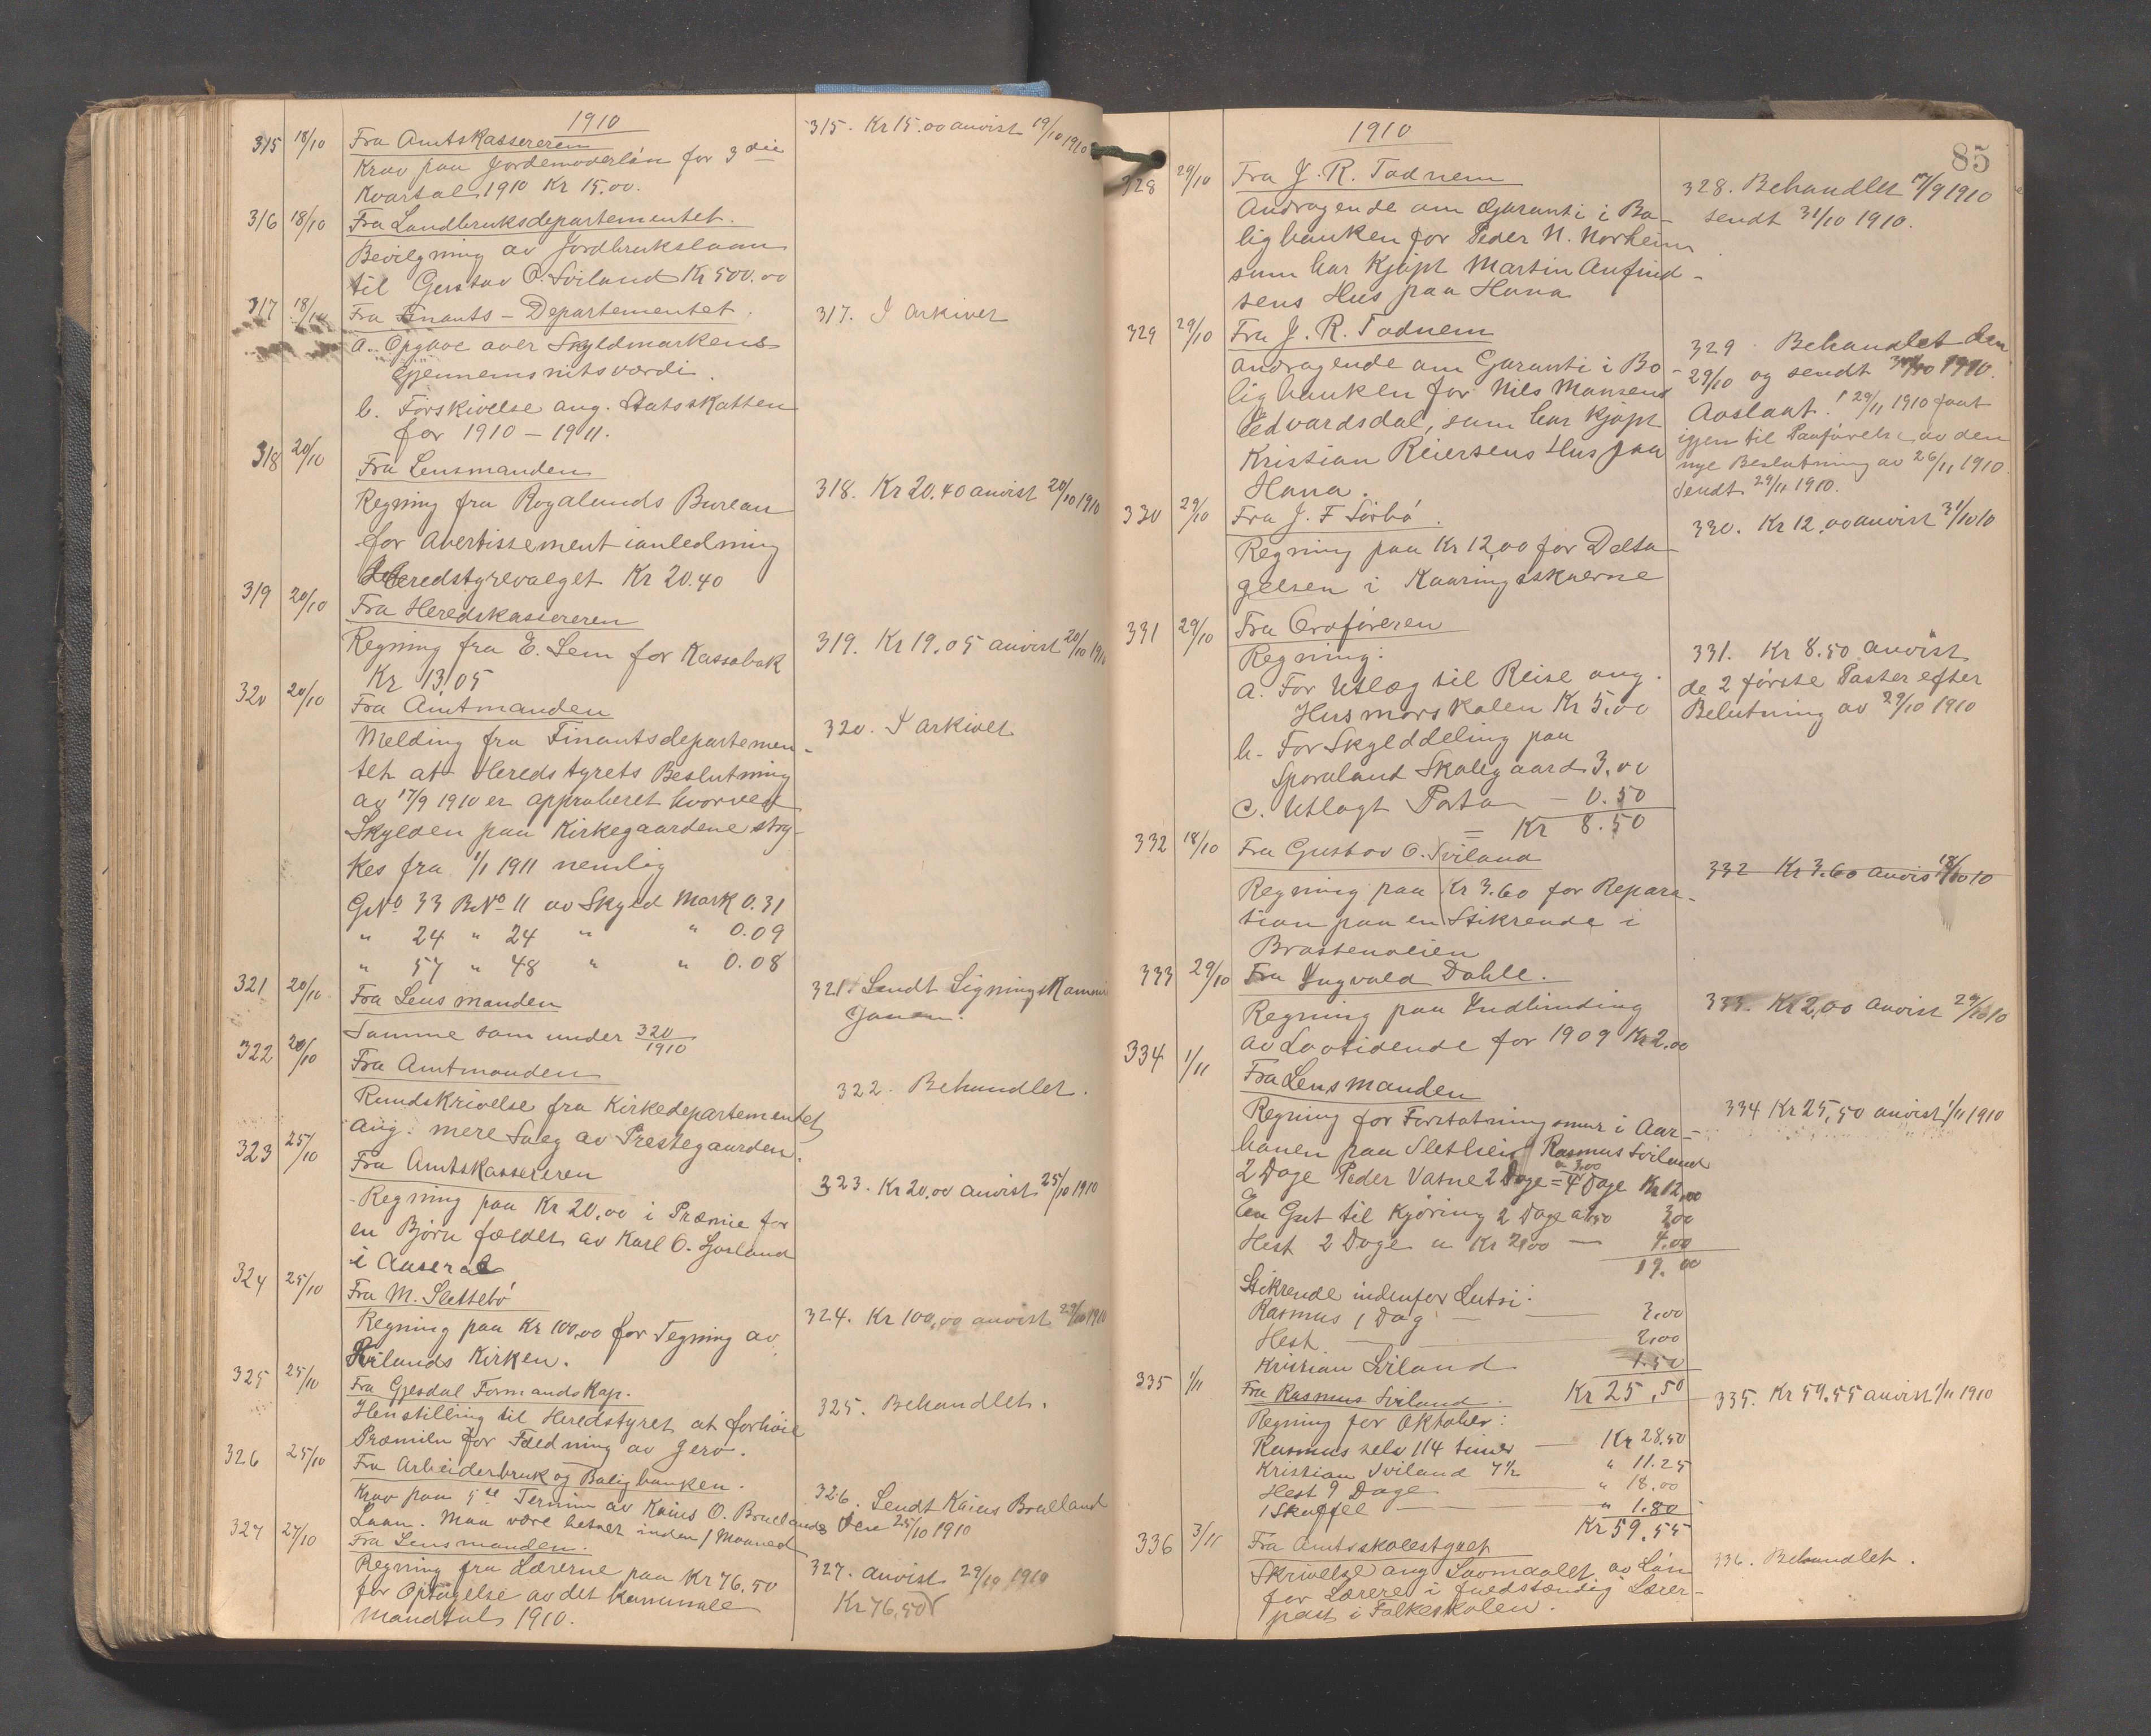 1910
315 18/10 Fra Amtskassereren
Krav paa Jordemoderløn for 3die
Kvartal 1910 Kr 15.00.
315. Kr 15.00 anvist 19/10 1910
316 18/10 Fra Landbruksdepartementet.
Bevilgning av Jordbrukslaan
til Gustav O. Sviland Kr 500.00
317 18/10 Fra Finants-Departementet.
a. Opgave over Skyldmarkens
Gjennemsnitsværdi.
b. Forskivelse ang. Statsskatten
for 1910-1911.
317. I arkivet
318 20/10 Fra Lensmanden
Regning fra Rogalands Bureau
for Avertissement i anledning
Heredstyrevalget Kr 20.40
318. Kr 20.40 anvist 20/10 1910
319 20/10 Fra Heredskassereren
Regning fra E. Lem for Kassabok
Kr 13.05
319. Kr 19.05 anvist 20/10 1910
320 20/10 Fra Amtmanden
Melding fra Finantsdepartemen-
tet at Heredstyrets Beslutning
av 17/9 1910 er approberet hvorved
Skylden paa Kirkegaardene stry-
kes fra 1/1 1911 nemlig
GNo 33 BNo 11 av Skyld Mark 0.31
" 24 " 24 " " 0.09
" 57 " 48 " " 0.08
320. I arkivet
321 20/10 Fra Lensmanden
Samme som under 320/1910
321. Sendt Ligningskommis
sjonen.
322 20/10 Fra Amtmanden
Rundskrivelse fra Kirkedepartementet
ang. mere Salg av Prestegaarden.
322. Behandlet.
323 25/10 Fra Amtskassereren
Regning paa Kr 20,00 i Præmie for
en Bjørn fældet av Karl O. Ljosland
i Aaseral
323. Kr 20,00 anvist 25/10 1910
324 25/10 Fra M. Slettebø
Regning paa Kr 100,00 for Tegning av
Kirken.
324. Kr 100,00 anvist 29/10 1910
325 25/10 Fra Gjesdal Formandskap.
Henstilling til Heredstyret at forhøie
Præmien for Fældning av Jerv.
325. Behandlet.
326 25/10 Fra Arbeiderbruk og Boligbanken.
Krav paa 5te Termin av Kaius O. Bruelands
Laan. Maa være betalt inden 1 Maaned
326. Sendt Kaius Brueland
den 25/10 1910
327 27/10 Fra Lensmanden.
Regning fra Lærerne paa Kr 76,50
for Optagelse av det kommunale
Mandtal 1910.
327. anvist 29/10 1910
Kr 76,50
85
1910
328 29/10 Fra J. R. Todnem
Andragende om Garanti i Bo-
ligbanken for Peder N. Norheim
som har kjøpt Martin Aufind-
sens Hus paa Hana
328. Behandlet 17/9 1910
sendt 31/10 1910.
329 29/10 Fra J. R. Todnem
Andragende om Garanti i Bo-
ligbanken for Nils Monsens
Edvardsdal, som har kjøpt
Kristian Reiersens Hus paa
Hana.
329 Behandlet den
29/10 og sendt 31/10 1910.
Avslaat. 29/11 1910 faat
igjen til Paaførelse av den
nye Beslutning av 26/11 1910.
Sendt 29/11 1910.
330 29/10 Fra J. F Sørbø.
Regning paa Kr 12,00 for Delta-
gelsen i Kaaringsskuerne
330. Kr 12,00 anvist 31/10 10
331 29/10 Fra Ordføreren
Regning:
a. For Utlæg til Reise ang.
Husmorskolen Kr 5.00
b. For Skylddeling paa
Sporaland Skolegaard 3.00
c. Utlagt Porto — 0.50
= Kr 8.50
331. Kr 8.50 anvist
de 2 første Poster efter
Belutning av 29/10 1910
332 18/10 Fra Gustav O. Sviland
Regning paa Kr 3.60 for Repara-
tion paa en Stikrende i
Brattenveien
332 Kr 3.60 anvist 18/10 10
333 29/10 Fra Yngvald Dahle.
Regning paa Indbinding
av Lovtidende for 1909 Kr 2.00
333. Kr 2,00 anvist 29/10 10
334 1/11 Fra Lensmanden
Regning for Forstøtningsmur i Aar-
haugen paa Sletheim Rasmus Sviland
2 Dage Peder Vatne 2 Dage = 4 Dage a 3.00 Kr 12,00
En Gut til Kjøring 2 Dage a 1.50 3,00
Hest 2 Dage a Kr 2,00 — 4.00
19.00
Stikrende indenfor Lutsi:
Rasmus 1 Dag — 3.00
Hest — 2.00
Kristian Sviland 1.50
Kr 25,50
334 Kr 25,50 anvist 1/11 1910
335 1/11 Fra Rasmus Sviland.
Regning for Oktober:
Rasmus selv 114 timer — Kr 28.50
Kristian Sviland 7½ " 11.25
Hest 9 Dage — " 18.00
1 Skuffel — " 1.80
Kr 59.55
335. Kr 59.55 anvist 1/11 1910
336 3/11 Fra Amtsskolestyret
Skrivelse ang Lovmaalet av Løn
for Lærere i fuldstændig Lærer-
post i Folkeskolen.
336. Behandlet.